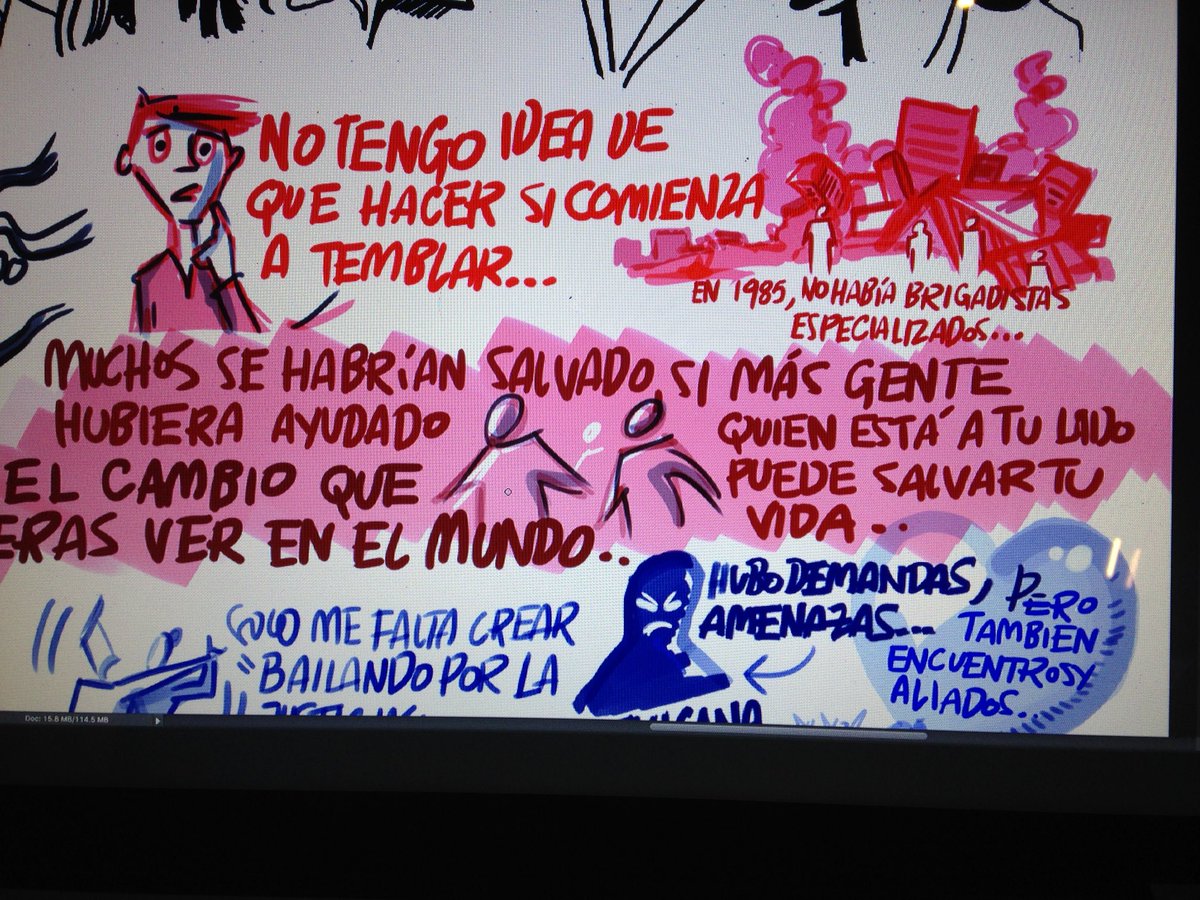 NO TENGO IDEA DE
QUE HACER SI COMIENZA
A TEMBLAR...
EN 1985, NO HABÍA BRIGADISTAS
ESPECIALIZADOS...
MUCHOS SE HABRÍAN SALVADO, SI MÁS GENTE
HUBIERA AYUDADO
EL CAMBIO QUE
ERAS VER EN EL MUNDO..
QUIEN ESTÁ A TU LADO
PUEDE SALVAR TU
VIDA...
SOLO ME FALTA CREAR
"BAILANDO POR LA
HUBO DEMANDAS, PERO
AMENAZAS...
TAMBIÉN
ENCUENTROS Y
ALIADOS.
Doc: 15.8 MB/114.5 MB